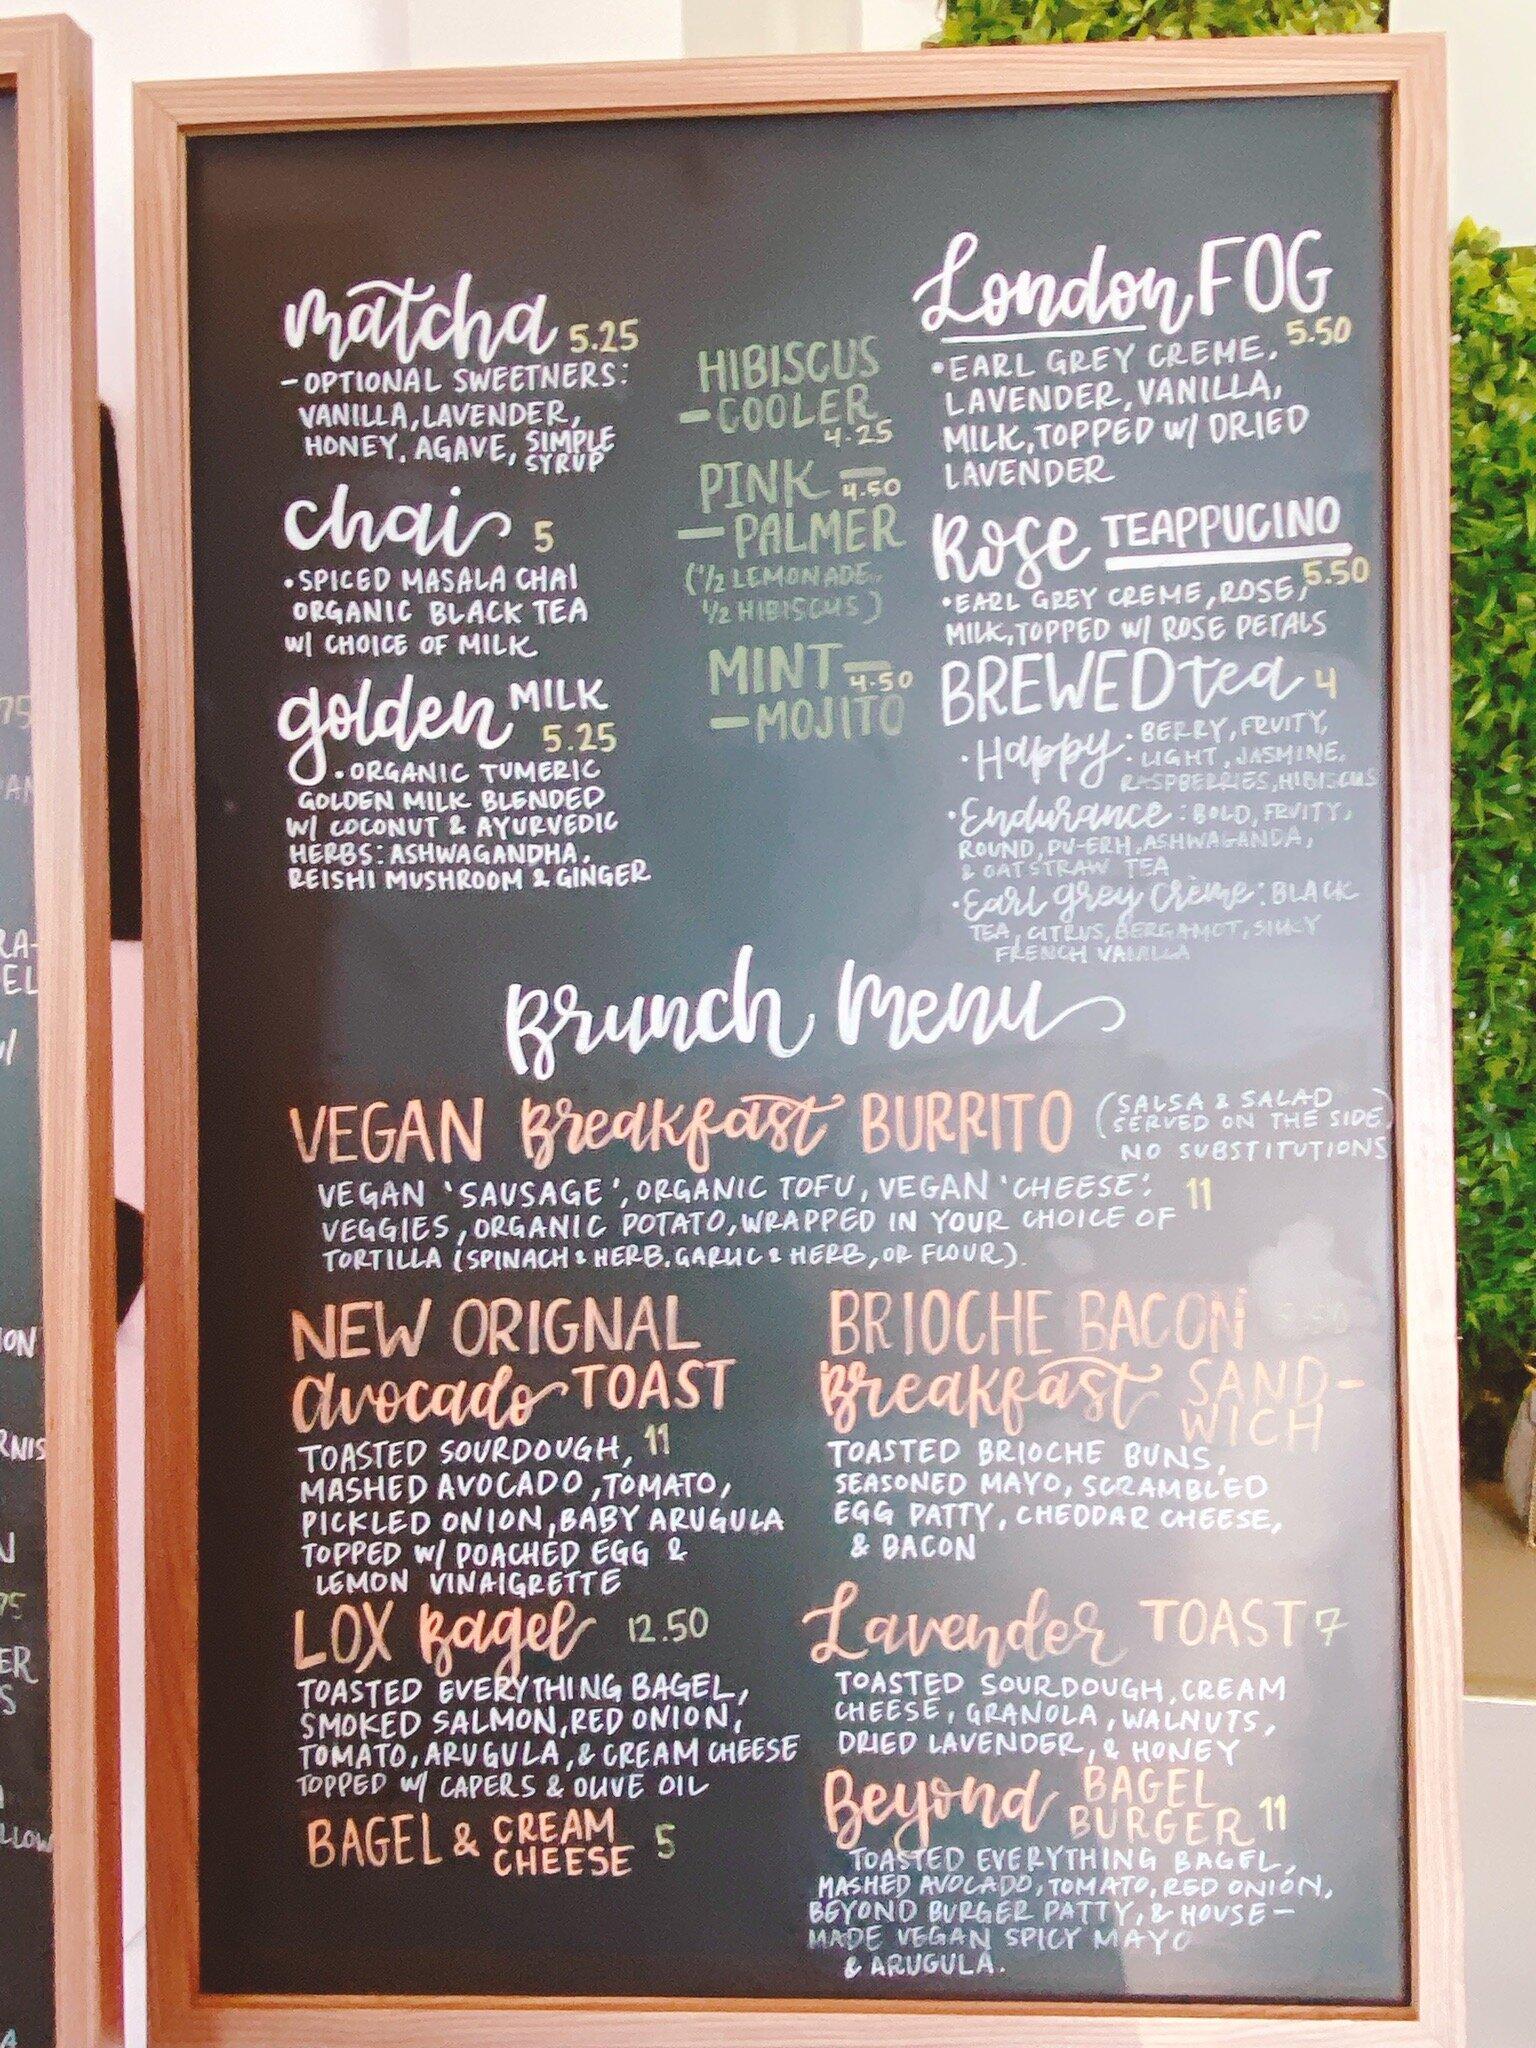 matcha 5.25
- OPTIONAL SWEETNERS:
VANILLA, LAVENDER,
HONEY, AGAVE, SIMPLE SYRUP
chai 5
• SPICED MASALA CHAI
ORGANIC BLACK TEA
W/ CHOICE OF MILK
golden MILK
5.25
• ORGANIC TUMERIC
GOLDEN MILK BLENDED
W/ COCONUT & AYURVEDIC
HERBS: ASHWAGANDHA,
REISHI MUSHROOM & GINGER
HIBISCUS
- COOLER
4.25
PINK - 4.50
- PALMER
(1/2 LEMONADE,
1/2 HIBISCUS)
MINT - 4.50
- MOJITO
London FOG
5.50
• EARL GREY CREME,
LAVENDER, VANILLA,
MILK, TOPPED W/ DRIED
LAVENDER
Rose TEAPPUCINO
5.50
• EARL GREY CREME, ROSE,
MILK, TOPPED W/ ROSE PETALS
BREWED tea 4
• Happy: BERRY, FRUITY,
LIGHT, JASMINE,
RASPBERRIES, HIBISCUS
• Endurance: BOLD, FRUITY,
ROUND, PU-ERH, ASHWAGANDA,
& OATSTRAW TEA
• Earl grey Crème: BLACK
TEA, CITRUS, BERGAMOT, SILKY
FRENCH VANILLA
Brunch Menu
VEGAN Breakfast BURRITO
(SALSA & SALAD
SERVED ON THE SIDE)
NO SUBSTITUTIONS
VEGAN 'SAUSAGE', ORGANIC TOFU, VEGAN 'CHEESE', 11
VEGGIES, ORGANIC POTATO, WRAPPED IN YOUR CHOICE OF
TORTILLA (SPINACH & HERB, GARLIC & HERB, OR FLOUR).
NEW ORIGNAL
avocado TOAST
TOASTED SOURDOUGH, 11
MASHED AVOCADO, TOMATO,
PICKLED ONION, BABY ARUGULA
TOPPED W/ POACHED EGG &
LEMON VINAIGRETTE
LOX Bagel 12.50
TOASTED EVERYTHING BAGEL,
SMOKED SALMON, RED ONION,
TOMATO, ARUGULA, & CREAM CHEESE
TOPPED W/ CAPERS & OLIVE OIL
BAGEL & CREAM CHEESE 5
BRIOCHE BACON
Breakfast SAND-
WICH
TOASTED BRIOCHE BUNS,
SEASONED MAYO, SCRAMBLED
EGG PATTY, CHEDDAR CHEESE,
& BACON
Lavender TOAST 7
TOASTED SOURDOUGH, CREAM
CHEESE, GRANOLA, WALNUTS,
DRIED LAVENDER, & HONEY
Beyond BAGEL BURGER 11
TOASTED EVERYTHING BAGEL,
MASHED AVOCADO, TOMATO, RED ONION,
BEYOND BURGER PATTY, & HOUSE-
MADE VEGAN SPICY MAYO
& ARUGULA.